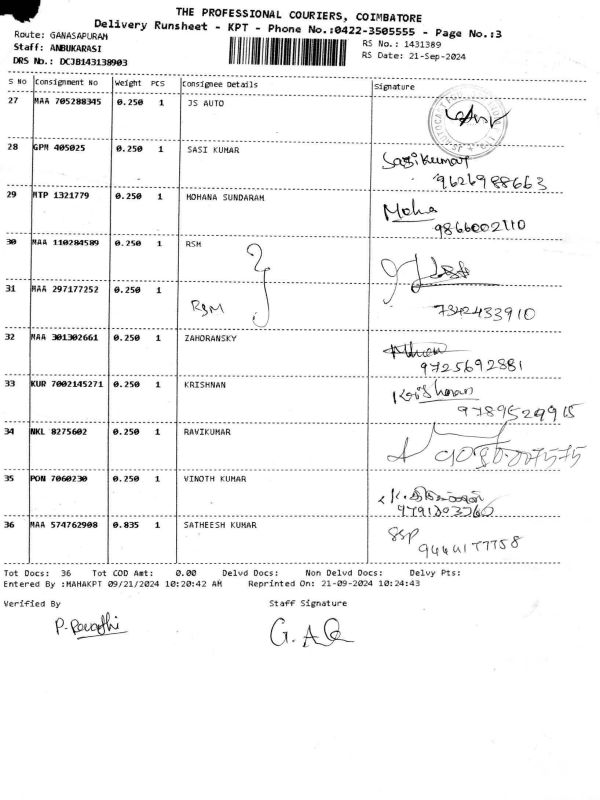 THE PROFESSIONAL COURIERS, COIMBATORE
Delivery Runsheet - KPT - Phone No.:0422-3505555 - Page No.:3
Route: GANASAPURAM RS No.: 1431389
Staff: ANBUKARASI RS Date: 21-Sep-2024
DRS No.: DCJB143138903
S No Consignment No Weight PCS Consignee Details Signature
27 MAA 705288345 0.250 1 JS AUTO
28 GPM 405025 0.250 1 SASI KUMAR Sasikumar
9626988663
29 MTP 1321779 0.250 1 MOHANA SUNDARAM Moha
9866002110
30 MAA 110284589 0.250 1 RSM
31 MAA 297177252 0.250 1 RSM
7342433910
32 MAA 301302661 0.250 1 ZAHORANSKY
9725692881
33 KUR 7002145271 0.250 1 KRISHNAN Krishnan
9789529915
34 NKL 8275602 0.250 1 RAVIKUMAR
35 PON 7060230 0.250 1 VINOTH KUMAR
36 MAA 574762908 0.835 1 SATHEESH KUMAR SSP
9444177758
Tot Docs: 36 Tot COD Amt: 0.00 Delvd Docs: Non Delvd Docs: Delvy Pts:
Entered By :MAHAKPT 09/21/2024 10:20:42 AM Reprinted On: 21-09-2024 10:24:43
Verified By Staff Signature
G.A